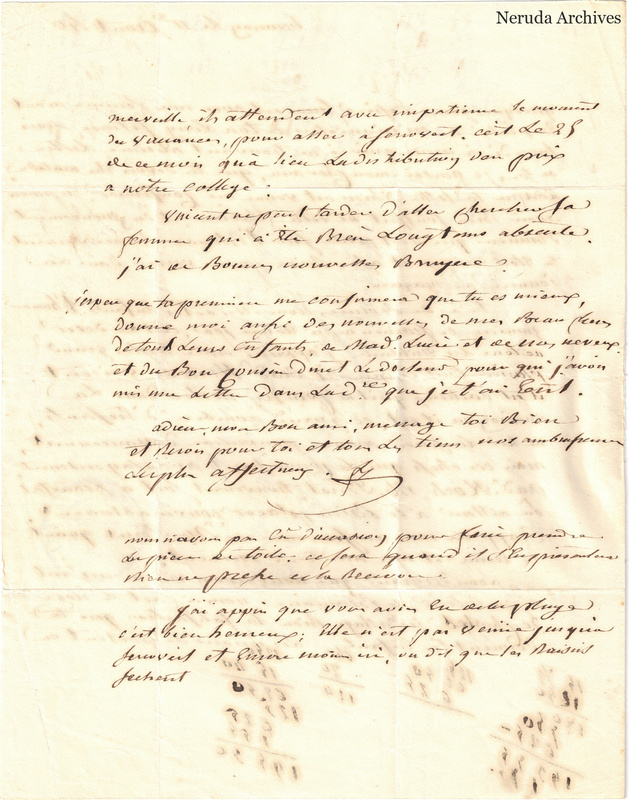 Neruda Archives
merveille ils attendent avec impatience le moment
des vacances, pour aller à . c'est Le 25
de ce mois qu'à lieu La distribution des prix
a notre college.
Vincent ne peut tarder d'aller chercher sa
femme qui à été Bien Longtems absente.
j'ai de Bonnes nouvelles Bruyere.
j'espere que ta premiere me confirmera que tu es mieux,
donne moi aussi des nouvelles de mes Beau freres
de tout Leurs Enfants, de Mad.e Lucie et de nos neveux
et du Bon Cousin Le docteur pour qui j'avois
mis une Lettre dans La d.re que je t'ai Ecrit.
adieu, mon Bon ami, menage toi Bien
et Recois pour toi et tous Les tiens nos
Les plus affectueux.
nous n'avons pas d'occasion pour faire prendre
La piece de toile. ce sera quand il s'En presentera
Rien ne presse a la Recevoir.
j'ai appris que vous avies Eu de la pluye
c'est bien heureux; Elle n'est pas venüe jusqu'a
et Encore moins ici, on dit que les Raisins
sechent